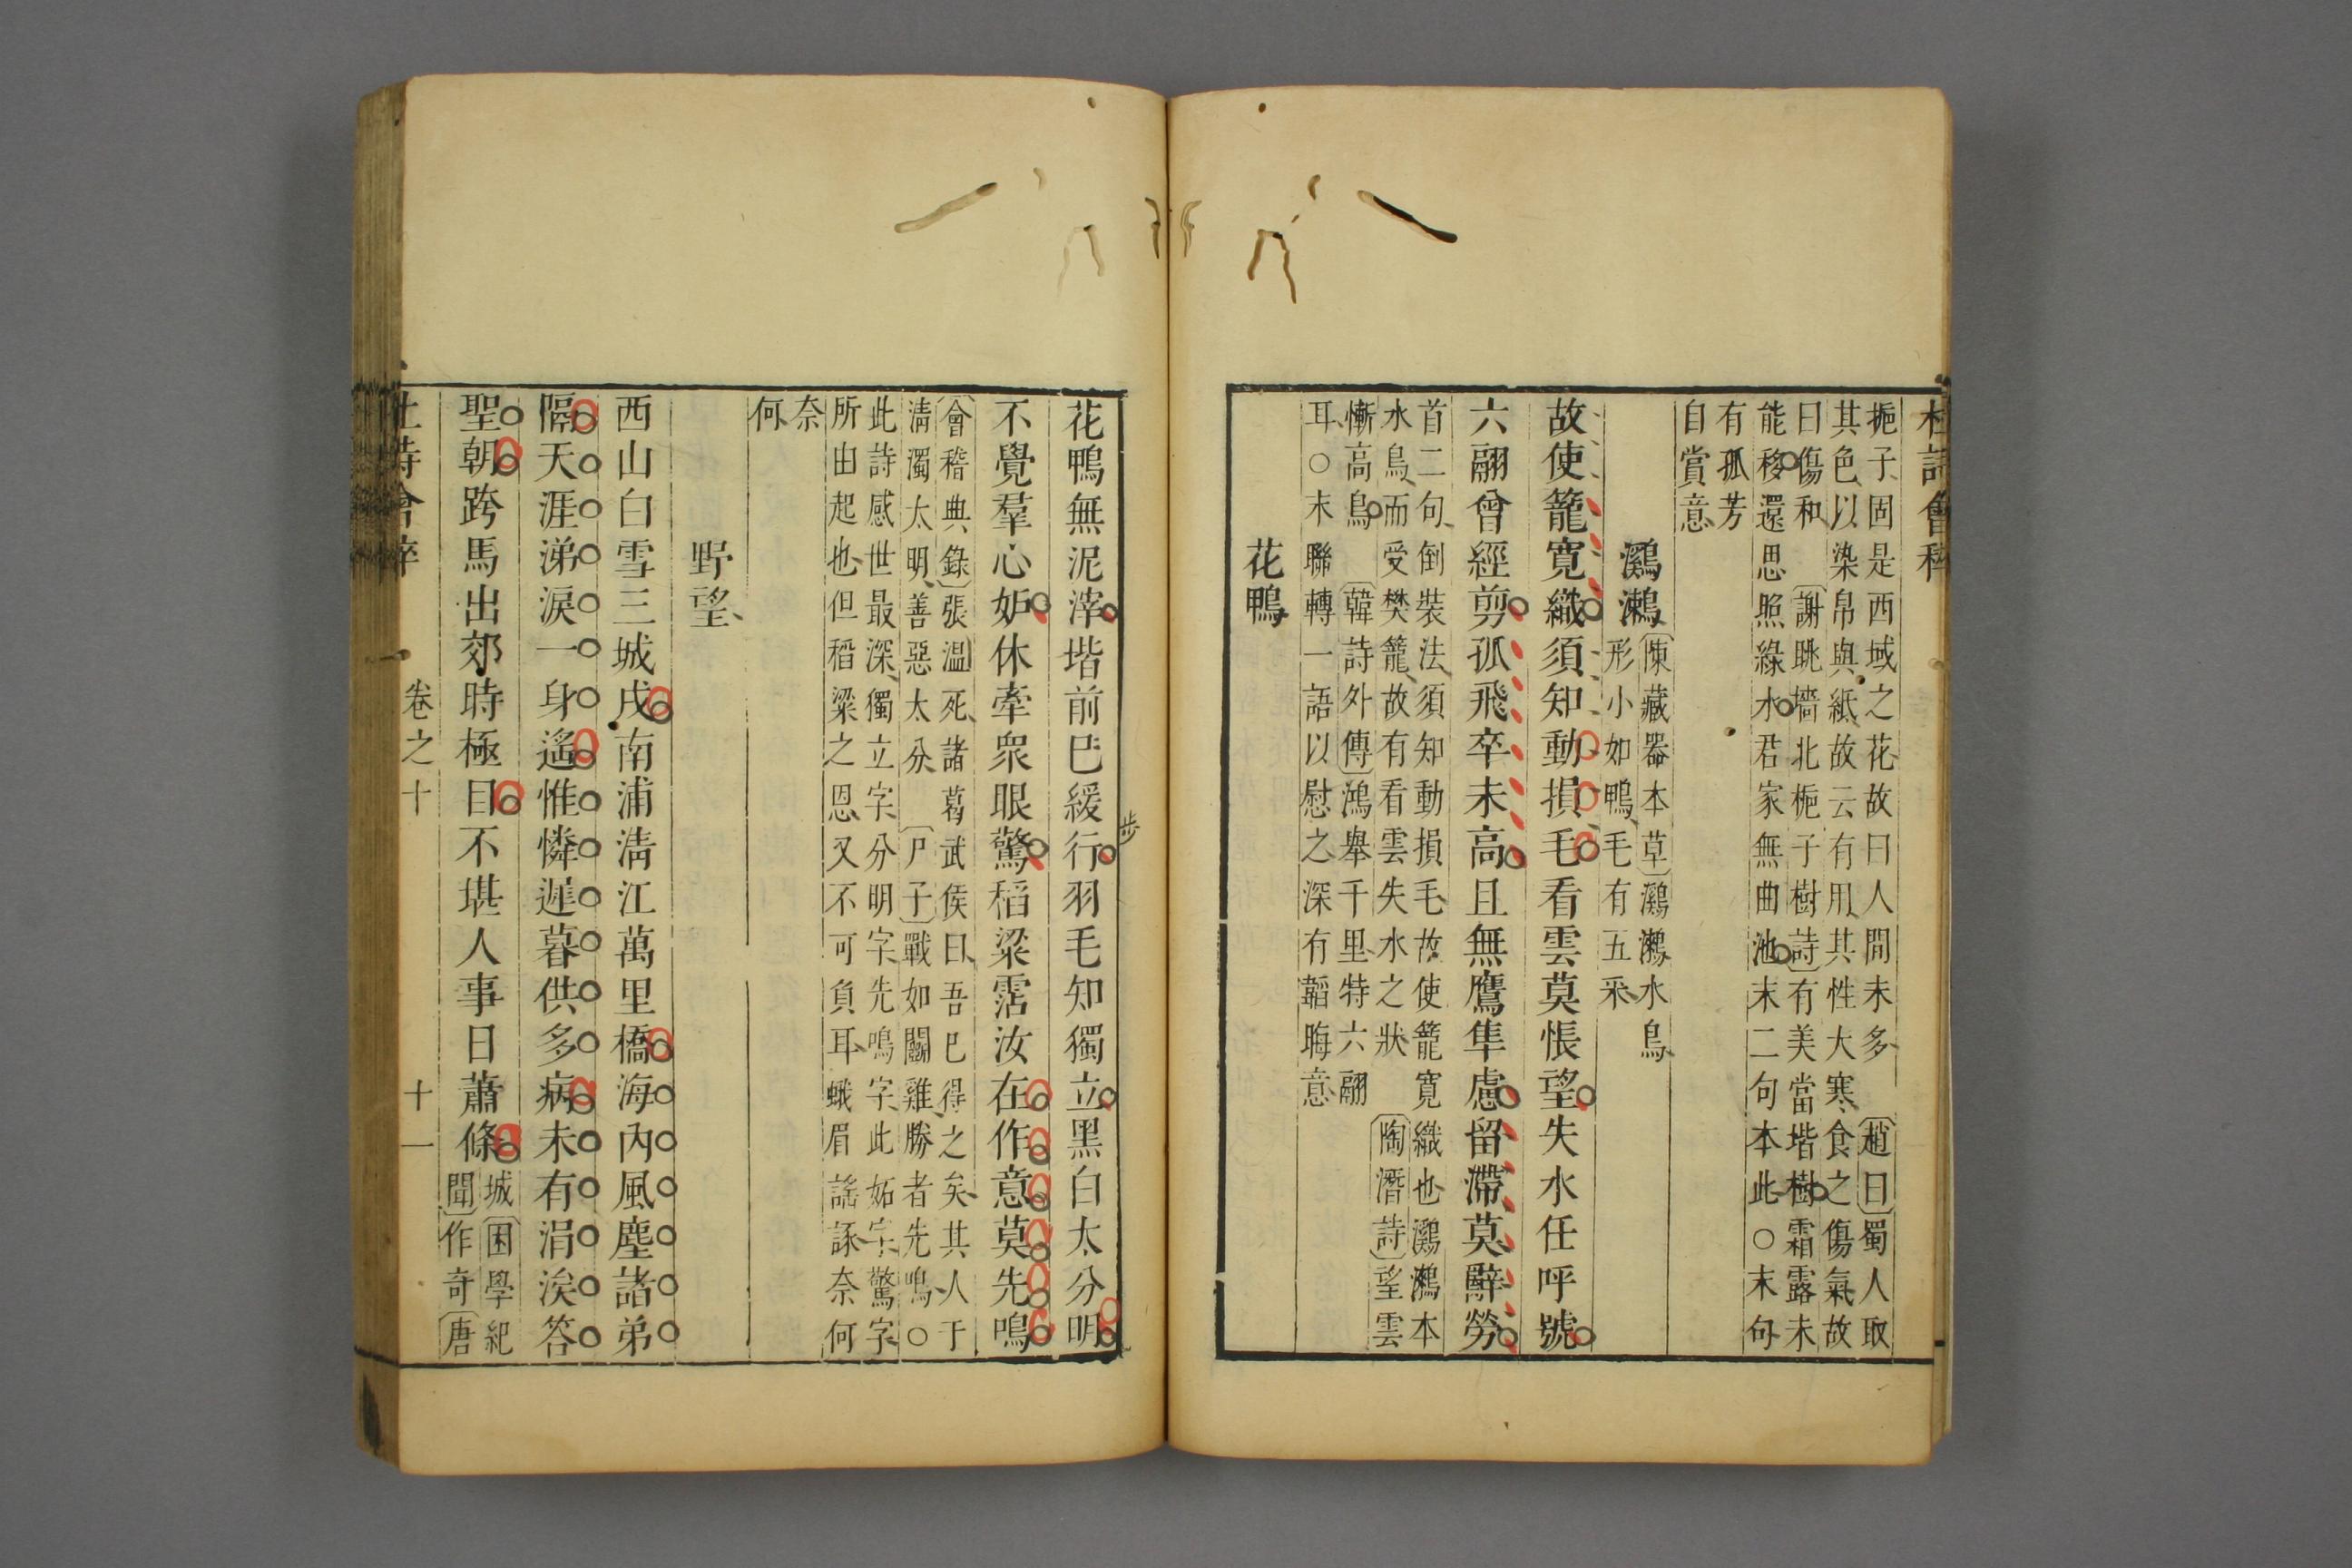 杜詩會稡
梔子固是西域之花故曰人間未多〔趙曰〕蜀人取
其色以染帛與紙故云有用其性大寒食之傷氣故
曰傷和〔謝眺墻北梔子樹詩〕有美當堦樹霜露未
能移還思照綠水君家無曲池末二句本此○末句
有孤芳
自賞意
鸂鶒
〔陳藏器本草〕鸂鶒水鳥
形小如鴨毛有五采
故使籠寬織須知動損毛看雲莫悵望失水任呼號
六翮曾經剪孤飛卒未高且無鷹隼慮留滯莫辭勞
首二句倒裝法須知動損毛故使籠寬織也鸂鶒本
水鳥而受樊籠故有看雲失水之狀〔陶潛詩〕望雲
慚高鳥〔韓詩外傳〕鴻舉千里特六翮
耳○末聯轉一語以慰之深有韜晦意
花鴨
花鴨無泥滓堦前巳緩行羽毛知獨立黑白太分明
步
不覺羣心妒休牽眾眼驚稻粱霑汝在作意莫先鳴
〔會稽典錄〕張温死諸葛武侯曰吾巳得之矣其人于
淸濁太明善惡太分〔尸子〕戰如鬭雞勝者先鳴○
此詩感世最深獨立字分明字先鳴字此妬字驚字
所由起也但稻粱之恩又不可負耳蛾眉謠諑奈何
奈
何
野望
西山白雪三城戍南浦淸江萬里橋海內風塵諸弟
隔天涯涕淚一身遙惟憐遲暮供多病未有涓涘答
聖朝跨馬出郊時極目不堪人事日蕭條
城〔困學紀
聞〕作奇〔唐
杜詩會稡 卷之十 十一